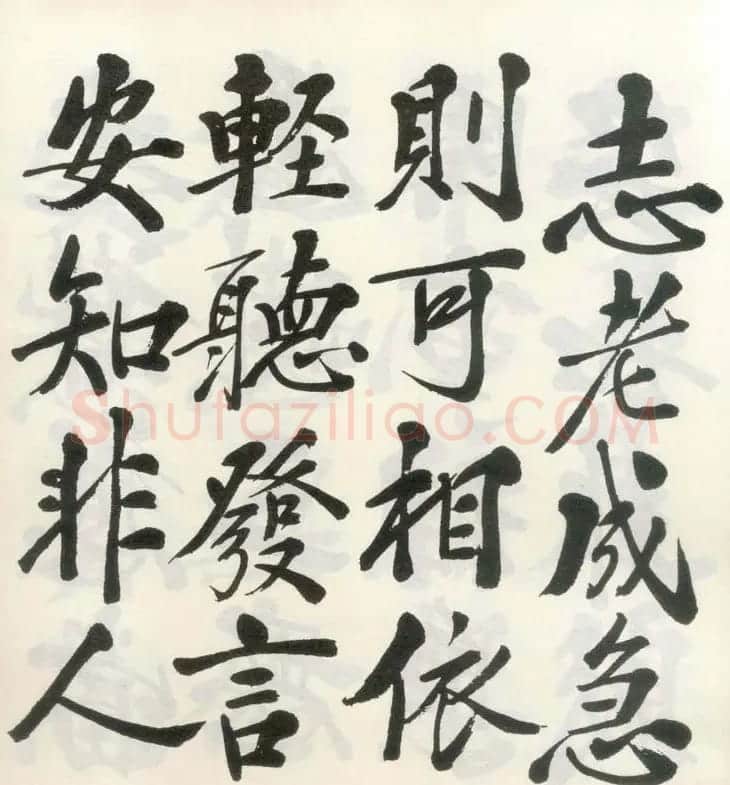 志老成急
則可相依
軽聽發言
安知非人
Shufaziliao.COM